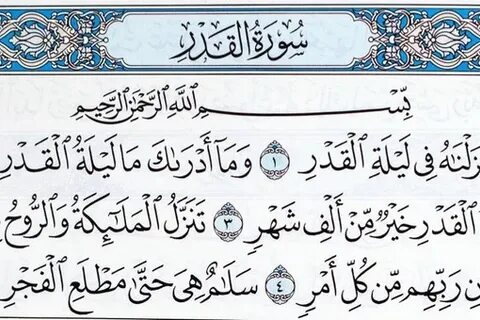 سُورَةُ القَدْرِ
بِسْمِ اللَّهِ الرَّحْمَٰنِ الرَّحِيمِ
زَلْنَٰهُ فِى لَيْلَةِ ٱلْقَدْرِ ١ وَمَآ أَدْرَىٰكَ مَا لَيْلَةُ ٱلْقَدْرِ
ٱلْقَدْرِ خَيْرٌ مِّنْ أَلْفِ شَهْرٍ ٣ تَنَزَّلُ ٱلْمَلَٰٓئِكَةُ وَٱلرُّوحُ
نِ رَبِّهِم مِّن كُلِّ أَمْرٍ ٤ سَلَٰمٌ هِىَ حَتَّىٰ مَطْلَعِ ٱلْفَجْرِ